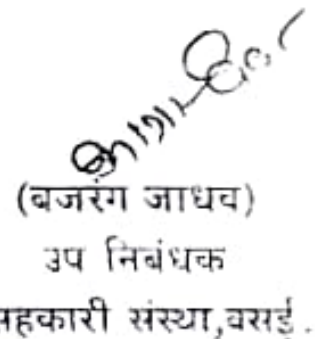 (बजरंग जाधव)
उप निबंधक
सहकारी संस्था,वसई.